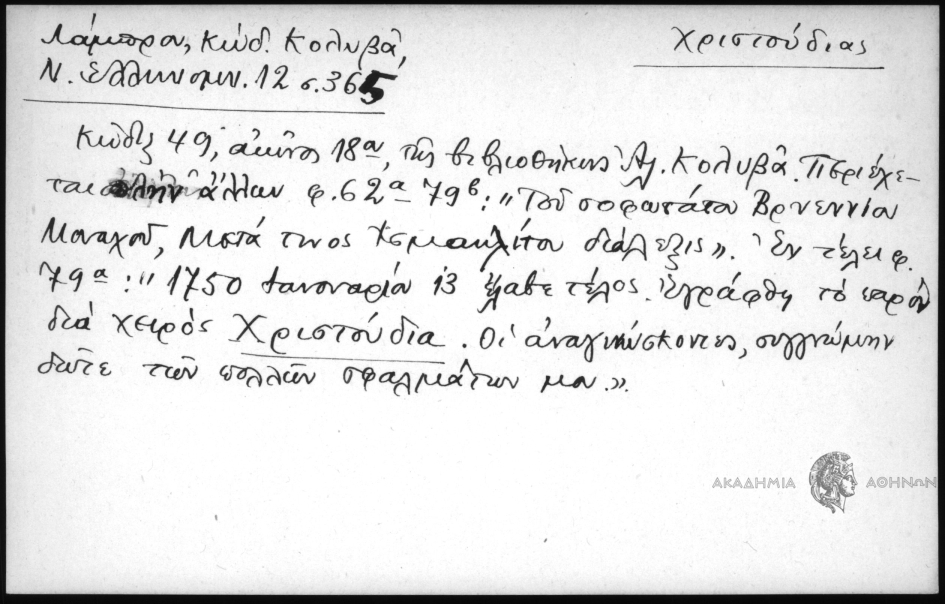 Λάμπρου, Κώδ. Κολυβᾶ,
Χριστούδιας
Ν. Ἑλληνομν. 12 σ. 365
Κώδιξ 49, αἰῶνος 18ου, τῆς βιβλιοθήκης Ἀλ. Κολυβᾶ. Περιέχε-
ται πλὴν ἄλλων φ. 62α-79β: "Τοῦ σοφωτάτου Βρυεννίου
Μοναχοῦ, μετά τινος Ἰσμαηλίτου διάλεξις". Ἐν τέλει φ.
79α: "1750 Ἰανουαρίου 13 ἔλαβε τέλος. Ἐγράφθη τὸ παρὸν
διὰ χειρὸς Χριστούδια. Οἱ ἀναγινώσκοντες, συγγνώμην
δῶτε τῶν πολλῶν σφαλμάτων μου."
ΑΚΑΔΗΜΙΑ ΑΘΗΝΩΝ